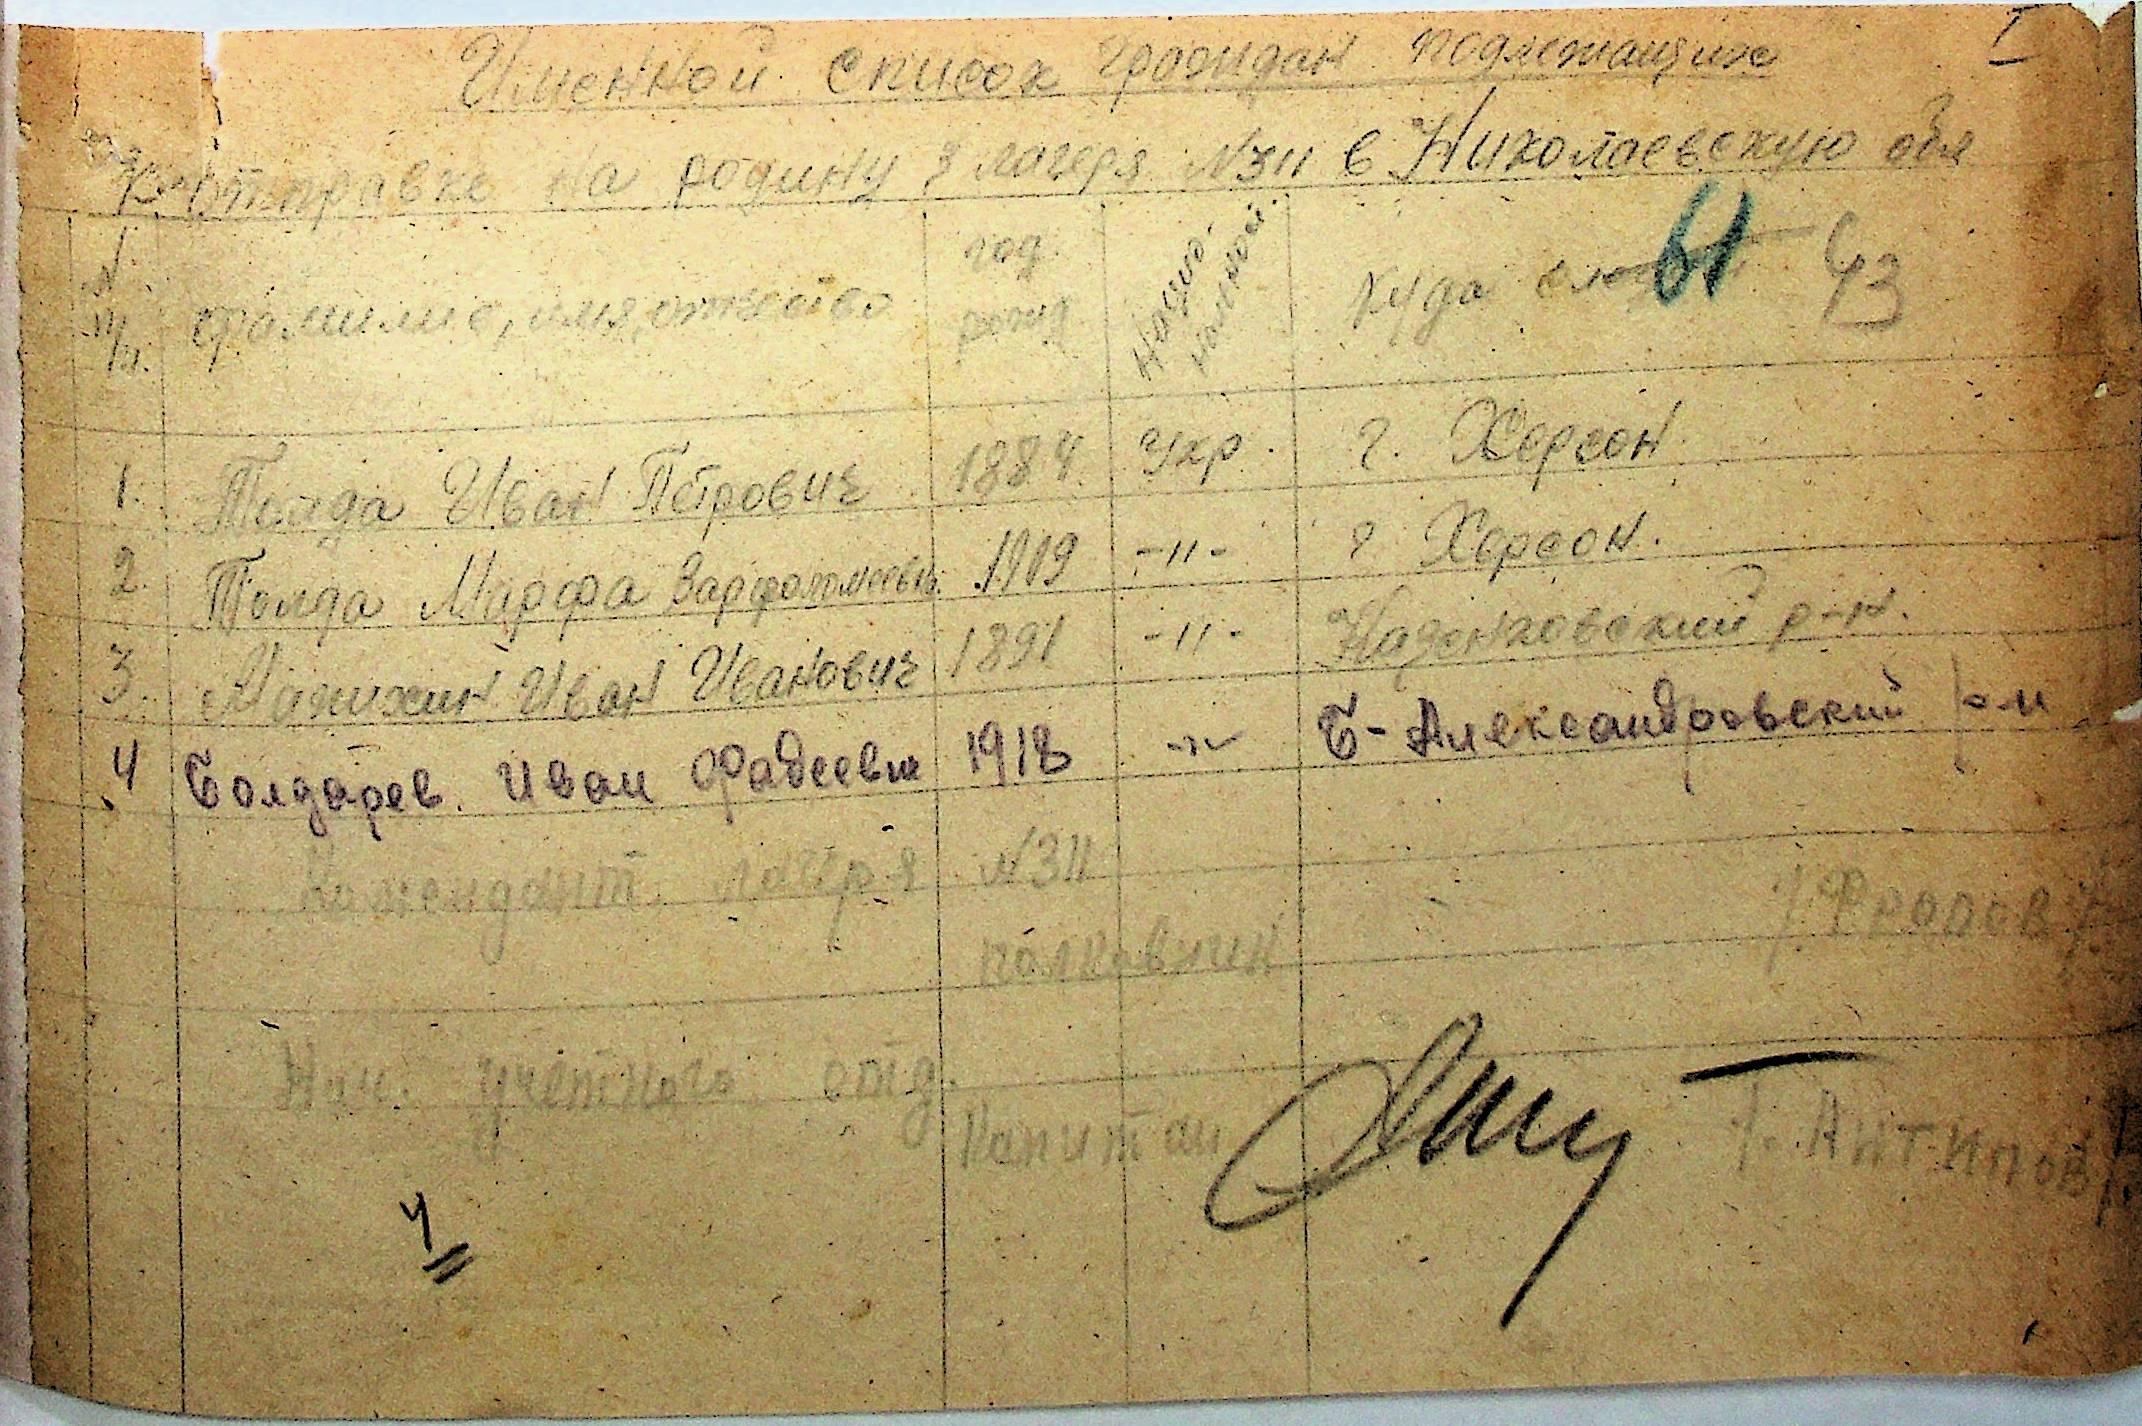 I
Именной список граждан подлежащих
к отправке на родину з лагеря №311 в Николаевскую обл
N п/п. фамилие, имя, отчество год рожд. Национальност. куда 61 43
1. Толда Иван Петрович 1884 Укр. г. Херсон
2. Толда Марфа Варфоломеевн. 1909 -"- г Херсон.
3. Иван Иванович 1891 -"- р-н.
4 Болдарев. Иван Фадеевич 1918 -"- Б-Александровский р-н
Комендант лагеря №311
полковник /Фролов/
Нач. учетного отд.
Капитан /Антипов/
4